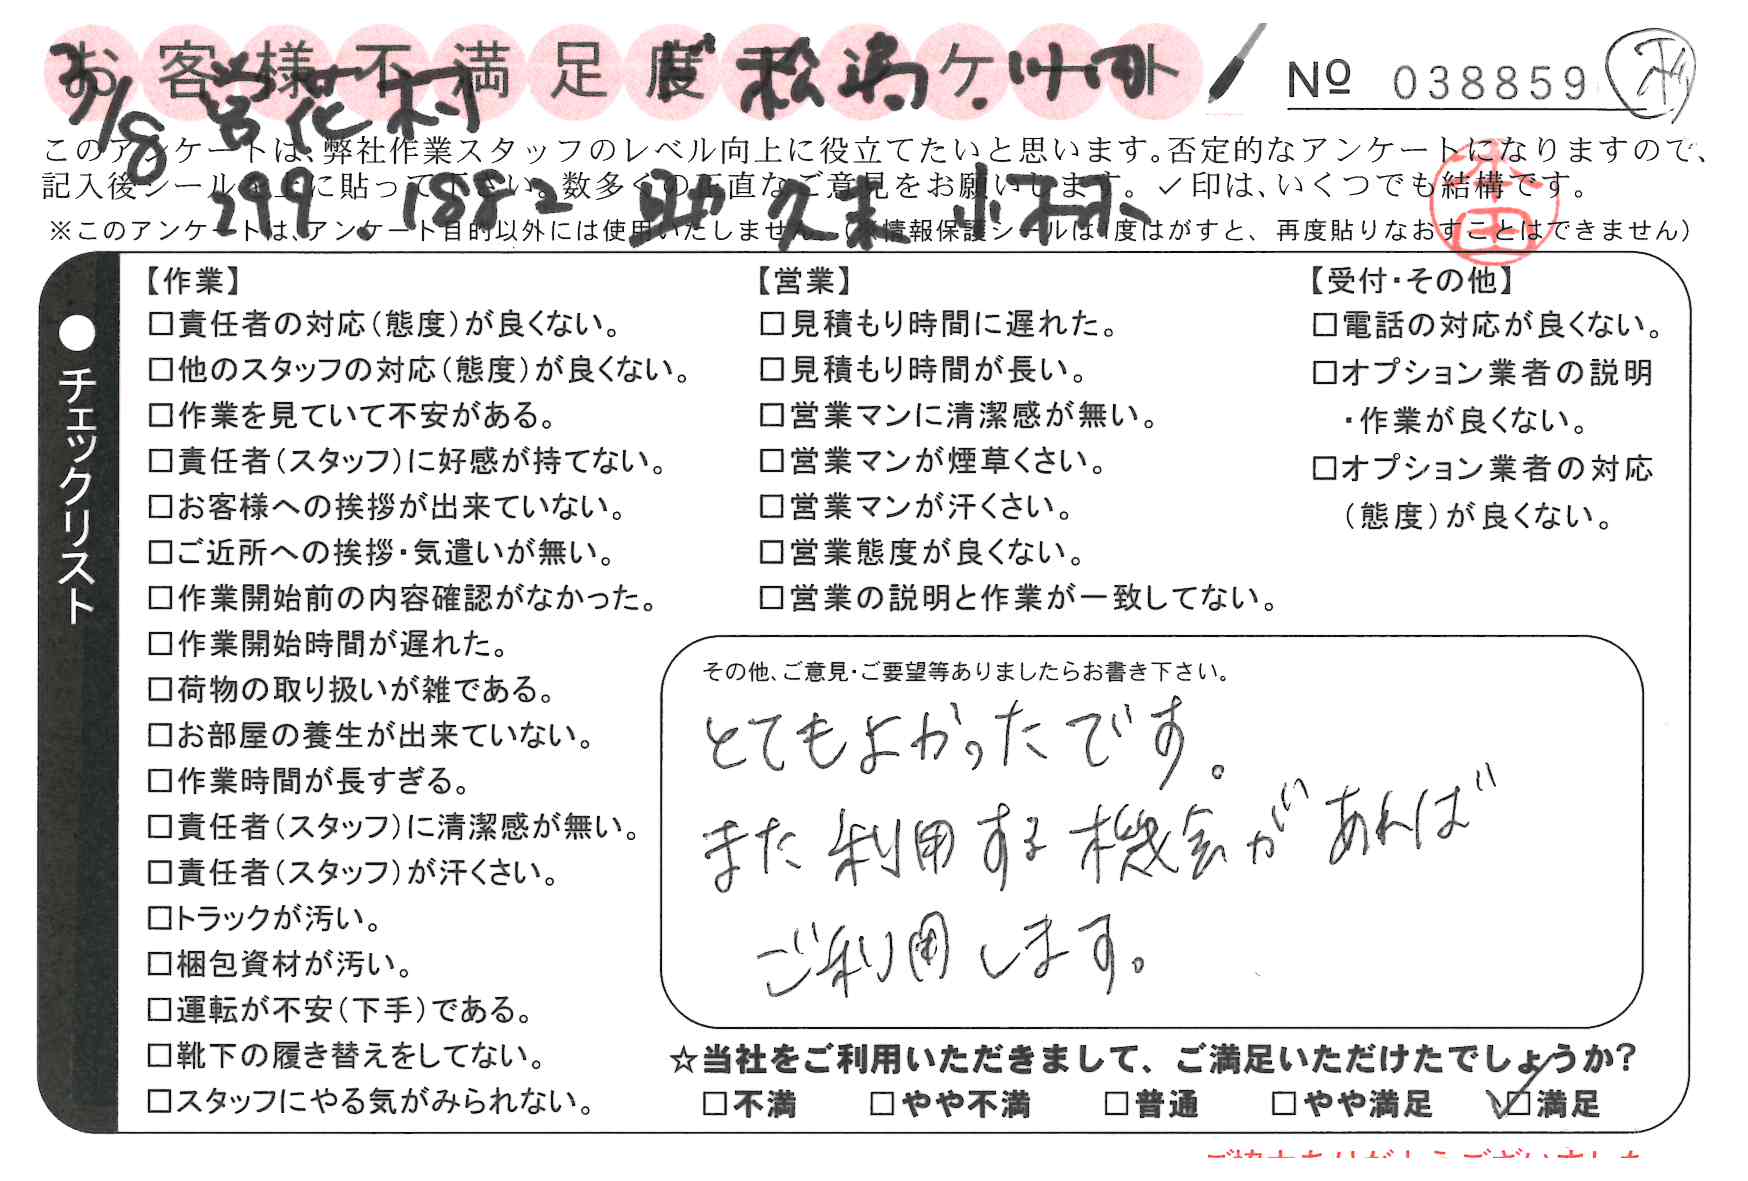 お客様不満足度アンケート
№ 038859
3/8
299.1882 助 久末 小林
このアンケートは、弊社作業スタッフのレベル向上に役立てたいと思います。否定的なアンケートになりますので、
記入後シールを上に貼って下さい。数多くの正直なご意見をお願いします。✓印は、いくつでも結構です。
※このアンケートは、アンケート目的以外には使用いたしません。(※情報保護シールは1度はがすと、再度貼りなおすことはできません)
●チェックリスト
【作業】
□責任者の対応(態度)が良くない。
□他のスタッフの対応(態度)が良くない。
□作業を見ていて不安がある。
□責任者(スタッフ)に好感が持てない。
□お客様への挨拶が出来ていない。
□ご近所への挨拶・気遣いが無い。
□作業開始前の内容確認がなかった。
□作業開始時間が遅れた。
□荷物の取り扱いが雑である。
□お部屋の養生が出来ていない。
□作業時間が長すぎる。
□責任者(スタッフ)に清潔感が無い。
□責任者(スタッフ)が汗くさい。
□トラックが汚い。
□梱包資材が汚い。
□運転が不安(下手)である。
□靴下の履き替えをしてない。
□スタッフにやる気がみられない。
【営業】
□見積もり時間に遅れた。
□見積もり時間が長い。
□営業マンに清潔感が無い。
□営業マンが煙草くさい。
□営業マンが汗くさい。
□営業態度が良くない。
□営業の説明と作業が一致してない。
【受付・その他】
□電話の対応が良くない。
□オプション業者の説明
・作業が良くない。
□オプション業者の対応
(態度)が良くない。
その他、ご意見・ご要望等ありましたらお書き下さい。
とてもよかったです。
また利用する機会があれば
ご利用します。
☆当社をご利用いただきまして、ご満足いただけたでしょうか?
□不満 □やや不満 □普通 □やや満足 ☑満足
ご協力ありがとうございました